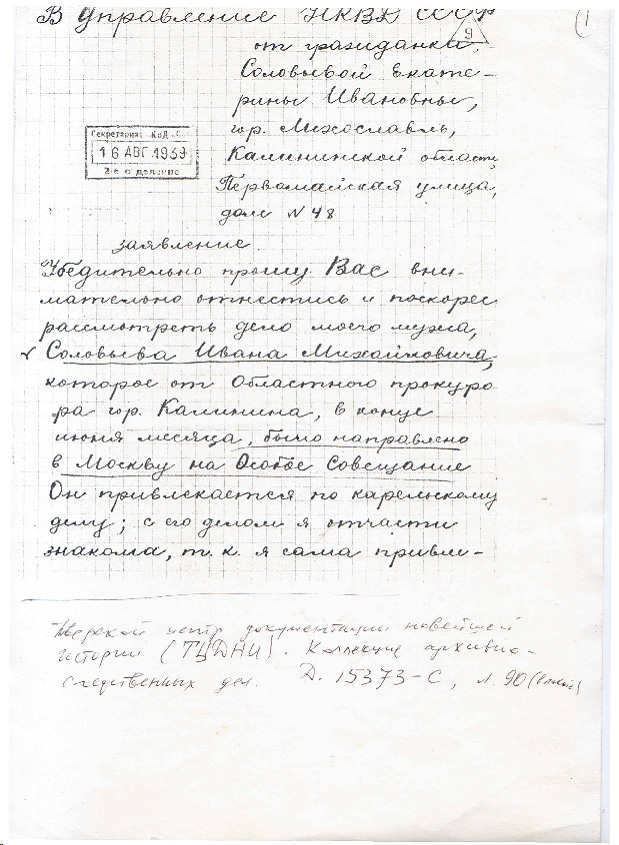 В Управление НКВД СССР
(1
9
от гражданки,
Соловьевой Екате-
рины Ивановны,
гор. Лихославль,
Калининской области,
Первомайская улица,
дом N 48
Секретариат
16 АВГ. 1939
2-е отделение
заявление.
Убедительно прошу Вас вни-
мательно отнестись и поскорее
рассмотреть дело моего мужа,
✓ Соловьева Ивана Михайловича,
которое от Областного прокуро
ра гор. Калинина, в конце
июня месяца, было направлено
в Москву на Особое Совещание
Он привлекается по карельскому
делу; с его делом я отчасти
знакома, т. к. я сама привле-
Тверской центр документации новейшей
истории (ТЦДНИ). Коллекция архивно-
следственных дел. Д. 15373-С, л. 90